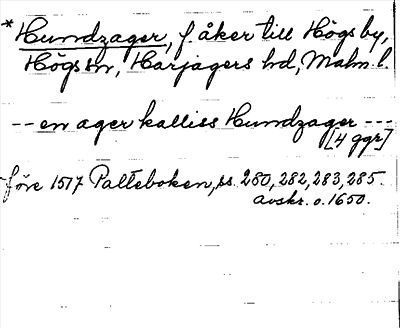 *Hundzager, f. åker till Högs by,
Högs sn, Harjagers hd, Malm. l.
-- en ager kalliss Hundzager ---
[4 ggr]
före 1517 Palteboken, ss. 280, 282, 283, 285.
avskr. o. 1650.